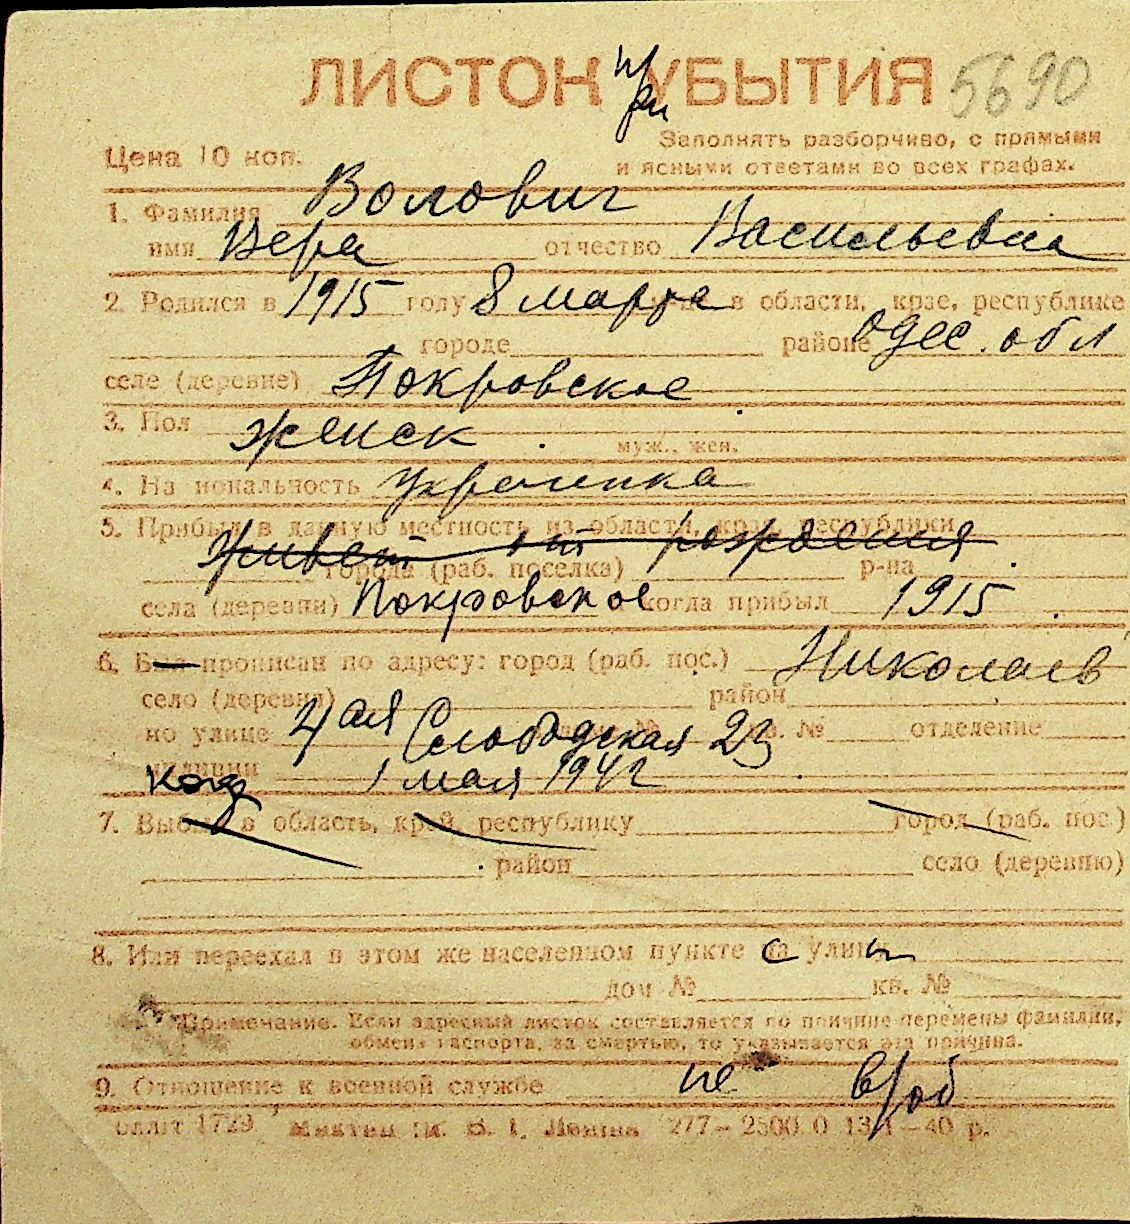 ЛИСТОК при УБЫТИЯ 5690
Заполнять разборчиво, с прямыми
Цена 10 коп. и ясными ответами во всех графах.
1. Фамилия Волович
имя Вера отчество Васильевна
2. Родился в 1915 году 8 марта в области, крае, республике
городе районе Одес. обл
селе (деревне) Покровское
3. Пол женск. муж., жен.
4. Национальность украинка
5. Прибыл в данную местность из области, края, республики
Живет от рождения
города (раб. поселка) р-на
села (деревни) Покровское когда прибыл 1915.
6. Был прописан по адресу: город (раб. пос.) Николаев
село (деревня) район
по улице 4ая Слободская 23 кв. № отделение
милиции когда 1 мая 1942
7. Выбыл в область, край, республику город (раб. пос.)
район село (деревню)
8. Или переехал в этом же населенном пункте с на улицы
дом № кв. №
Примечание. Если адресный листок составляется по причине перемены фамилии,
обмена паспорта, за смертью, то указывается эта причина.
9. Отношение к военной службе не в/об
1729 им. В. И. Ленина 277—2500.0 —40 р.